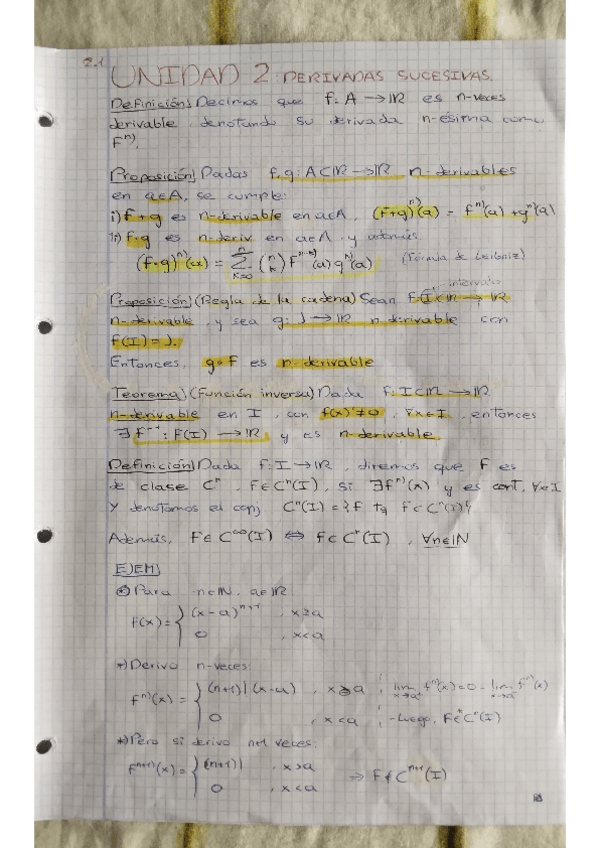 2.1
UNIDAD 2: DERIVADAS SUCESIVAS.
Definición) Decimos que f: A → ℝ es n-veces
derivable, denotando su derivada n-esima como
fⁿ⁾.
Proposición) Dadas f, g: A⊂ℝ → ℝ n-derivables
en a∈A, se cumple:
i) f+g es n-derivable en a∈A, (f+g)ⁿ⁾(a) = fⁿ⁾(a) + gⁿ⁾(a)
ii) f·g es n-deriv en a∈A y además
(f·g)ⁿ⁾(a) = Σₖ₌₀ⁿ (n k) fⁿ⁻ᵏ⁾(a) gᵏ⁾(a) (Fórmula de Leibniz)
intervalo
Proposición) (Regla de la cadena) Sean f: I⊂ℝ → ℝ
n-derivable, y sea g: J → ℝ n derivable con
f(I)=J.
Entonces, g∘f es n-derivable
Teorema) (Función inversa) Dada f: I⊂ℝ → ℝ
n-derivable en I, con f(x)'≠0, ∀x∈I, entonces
∃ f⁻¹: f(I) → ℝ y es n-derivable.
Definición) Dada f: I → ℝ, diremos que f es
de clase Cⁿ, f∈Cⁿ(I), si ∃fⁿ⁾(x) y es cont, ∀x∈I
y denotamos el conj Cⁿ(I) = {f tq f∈Cⁿ(I)}
Además, f∈C^∞(I) ⇔ f∈Cⁿ(I), ∀n∈ℕ
EJEM)
*) Para n∈ℕ, a∈ℝ
f(x) = { (x-a)ⁿ⁺¹ , x≥a
0 , x<a
*) Derivo n-veces:
fⁿ⁾(x) = { (n+1)! (x-a) , x≥a lim fⁿ⁾(x)=0= lim fⁿ⁾(x)
0 , x<a - Luego, f∈Cⁿ(I)
*) Pero si derivo n+1 veces:
fⁿ⁺¹⁾(x) = { (n+1)! , x>a
0 , x<a ⇒ f∉Cⁿ⁺¹(I)